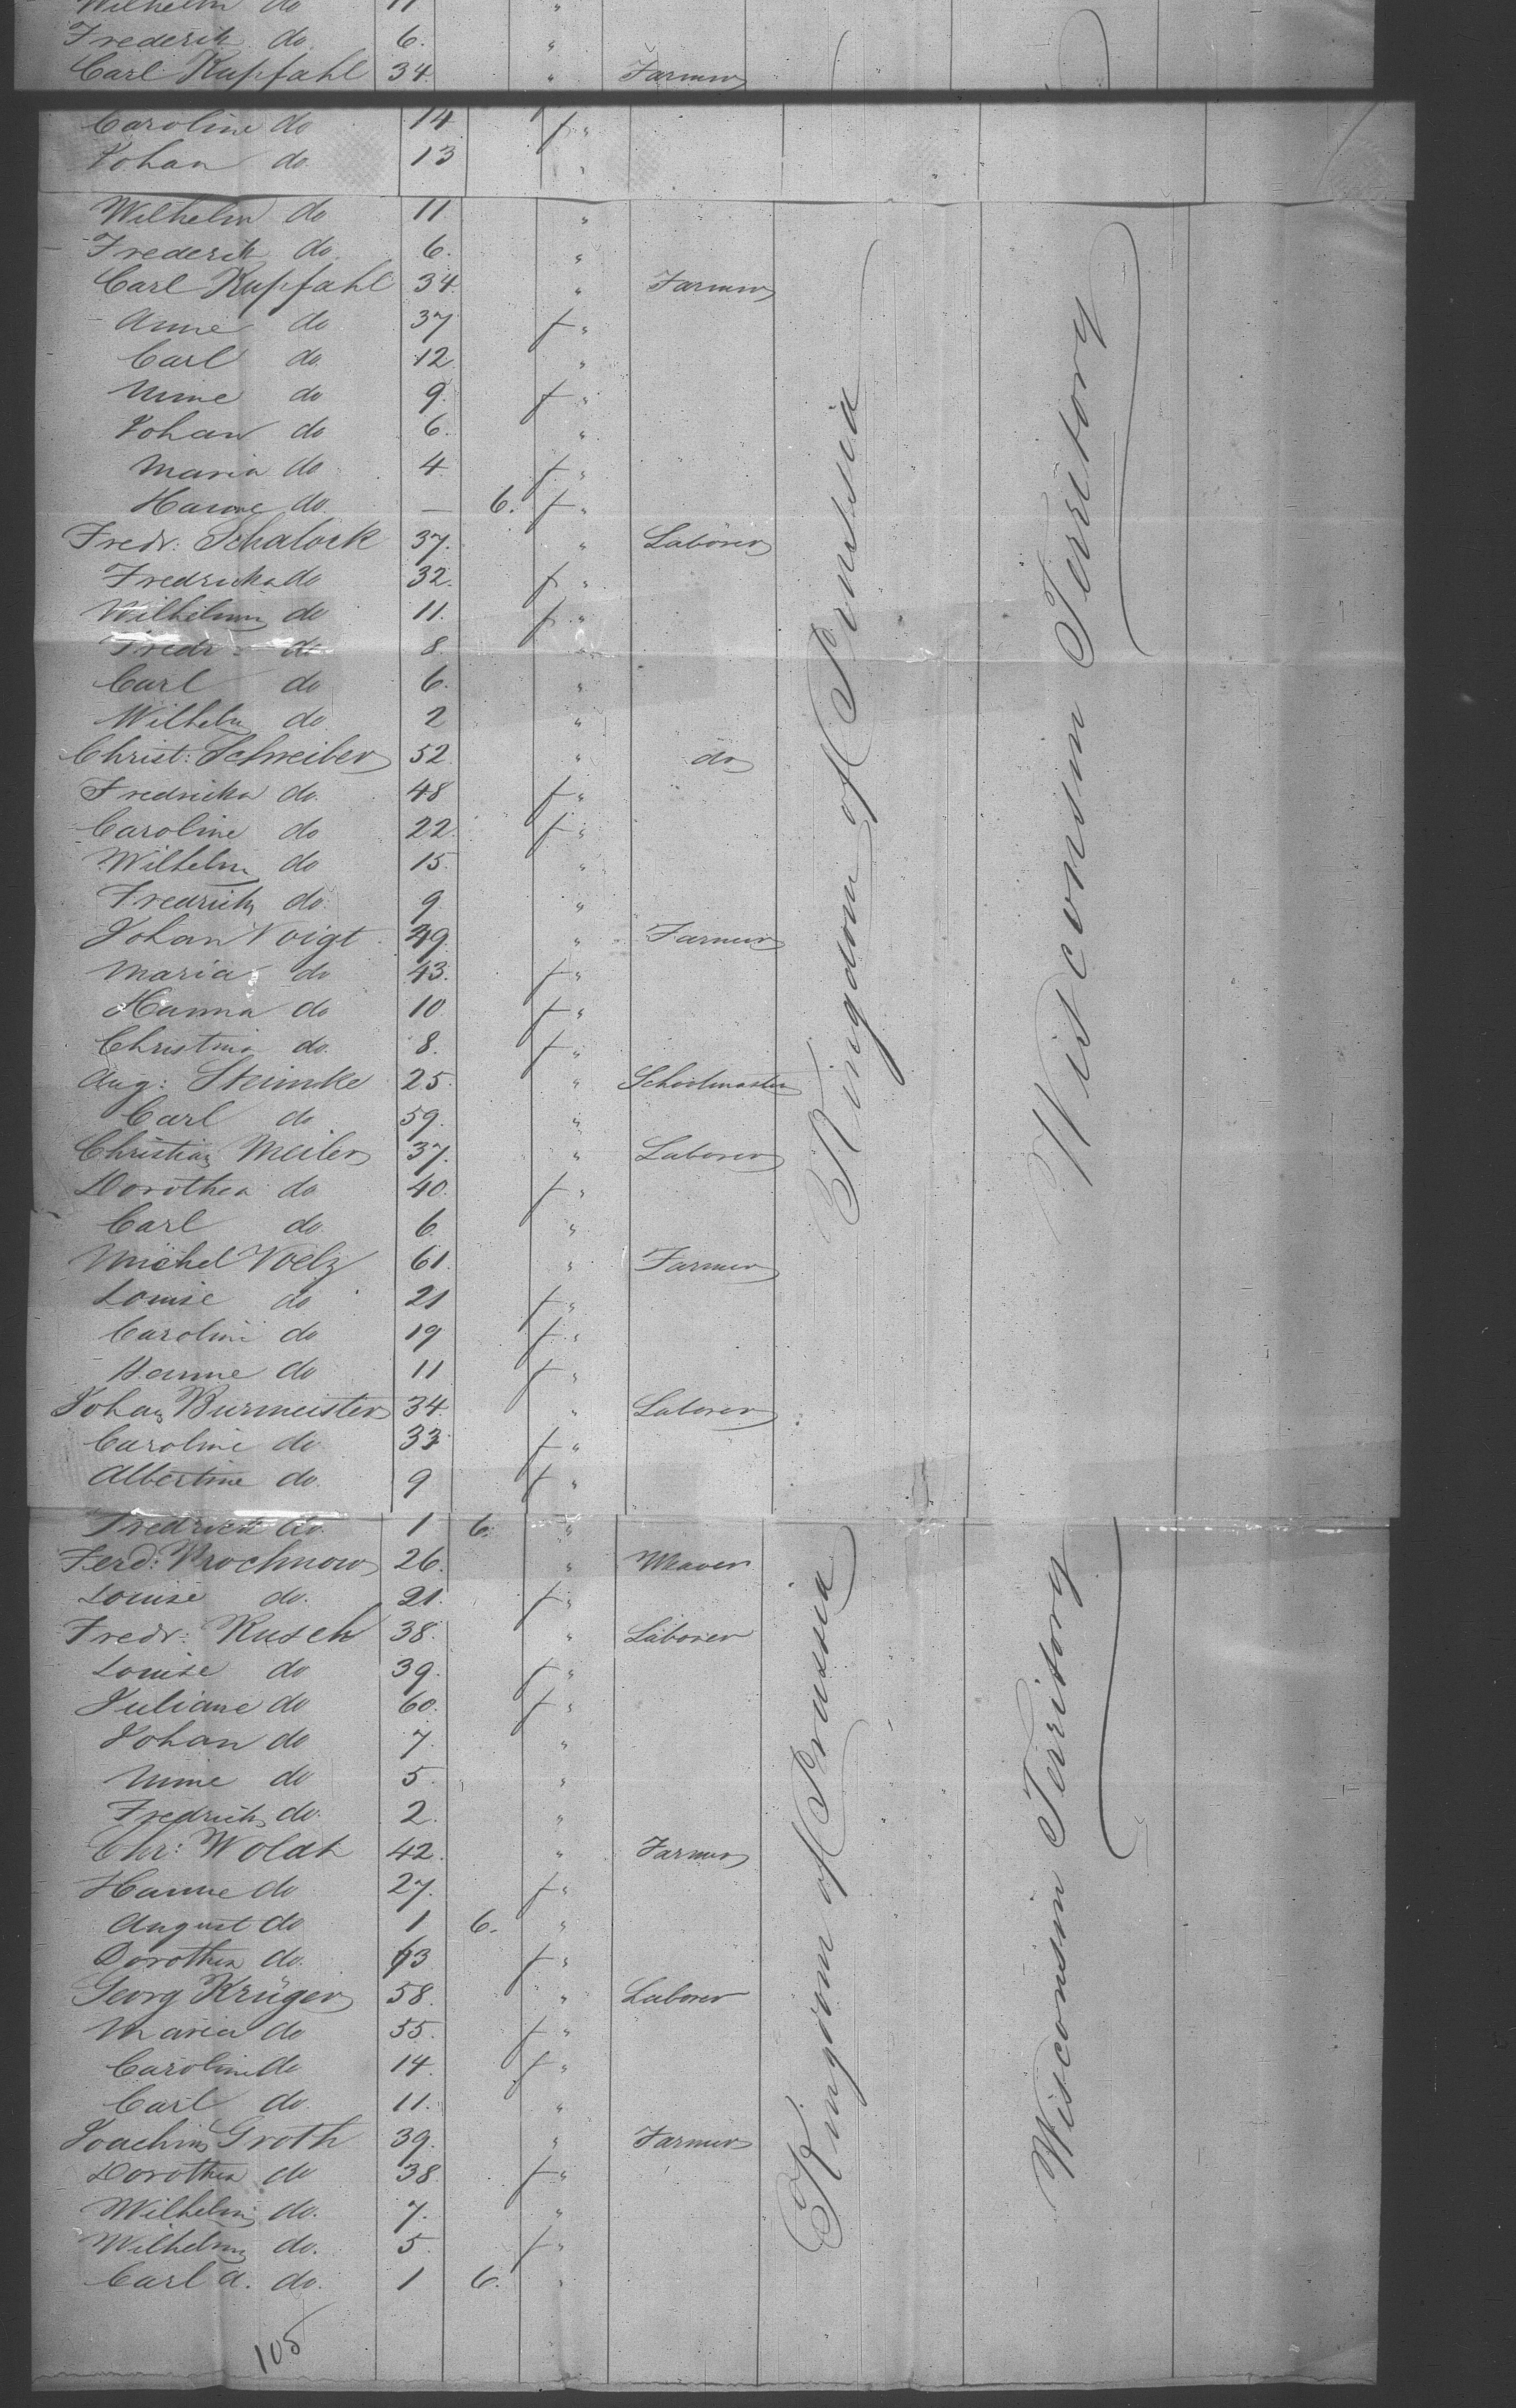 Wilhelm do 11 "
Frederik do. 6. "
Carl Kupfahl 34 " Farmer
Caroline do 14 f "
Johan do. 13 "
Wilhelm do 11 "
Frederik do. 6. "
Carl Kupfahl 34 " Farmer
Anne do 37 f "
Carl do. 12 "
Mine do 9. f "
Johan do 6. "
Maria do 4 f "
Hanne do. — 6. f "
Fredr: Schalock 37. " Laborer
Fredricka do 32. f "
Wilhelmn do 11. f "
Fredr: do 8. "
Carl do 6. "
Wilhelm do 2 "
Christ: Schreiber 52 " do
Fredricka do. 48 f "
Caroline do 22. f "
Wilhelm do 15. "
Fredrich do. 9 "
Johan Voigt 49 " Farmer
Maria do 43. f "
Hanna do 10 f "
Christina do. 8. f "
Aug: Steimke 25. " Schoolmaster
Carl do 59. "
Christian Meiler 37. " Laborer
Dorothea do 40. f "
Carl do. 6. "
Michel Voelz 61. " Farmer
Louise do 21 f "
Caroline do 19 f "
Hanne do 11 f "
Johan Burmeister 34. " Laborer
Caroline do 33 f "
Albertine do. 9 f "
Kingdom of Prussia
Wisconsin Teritory
Fredrich do. 1 6. "
Ferd: Prochnow 26. " Weaver
Louise do. 21. f "
Fredr: Rusch 38. " Laborer
Louise do 39. f "
Juliane do 60. f "
Johan do 7. "
Mine do 5. "
Fredrich do. 2. "
Chr: Woldt 42. " Farmer
Hanne do 27. f "
August do 1 6. "
Dorothea do. 63 f "
Georg Krüger 58. " Laborer
Maria do 55. f "
Caroline do 14. f "
Carl do. 11. "
Joachim Groth 39. " Farmer
Dorothea do 38 f "
Wilhelm do. 7. "
Wilhelmn do. 5. f "
Carl A. do. 1 6. "
Kingdom of Prussia
Wisconsin Teritory
105